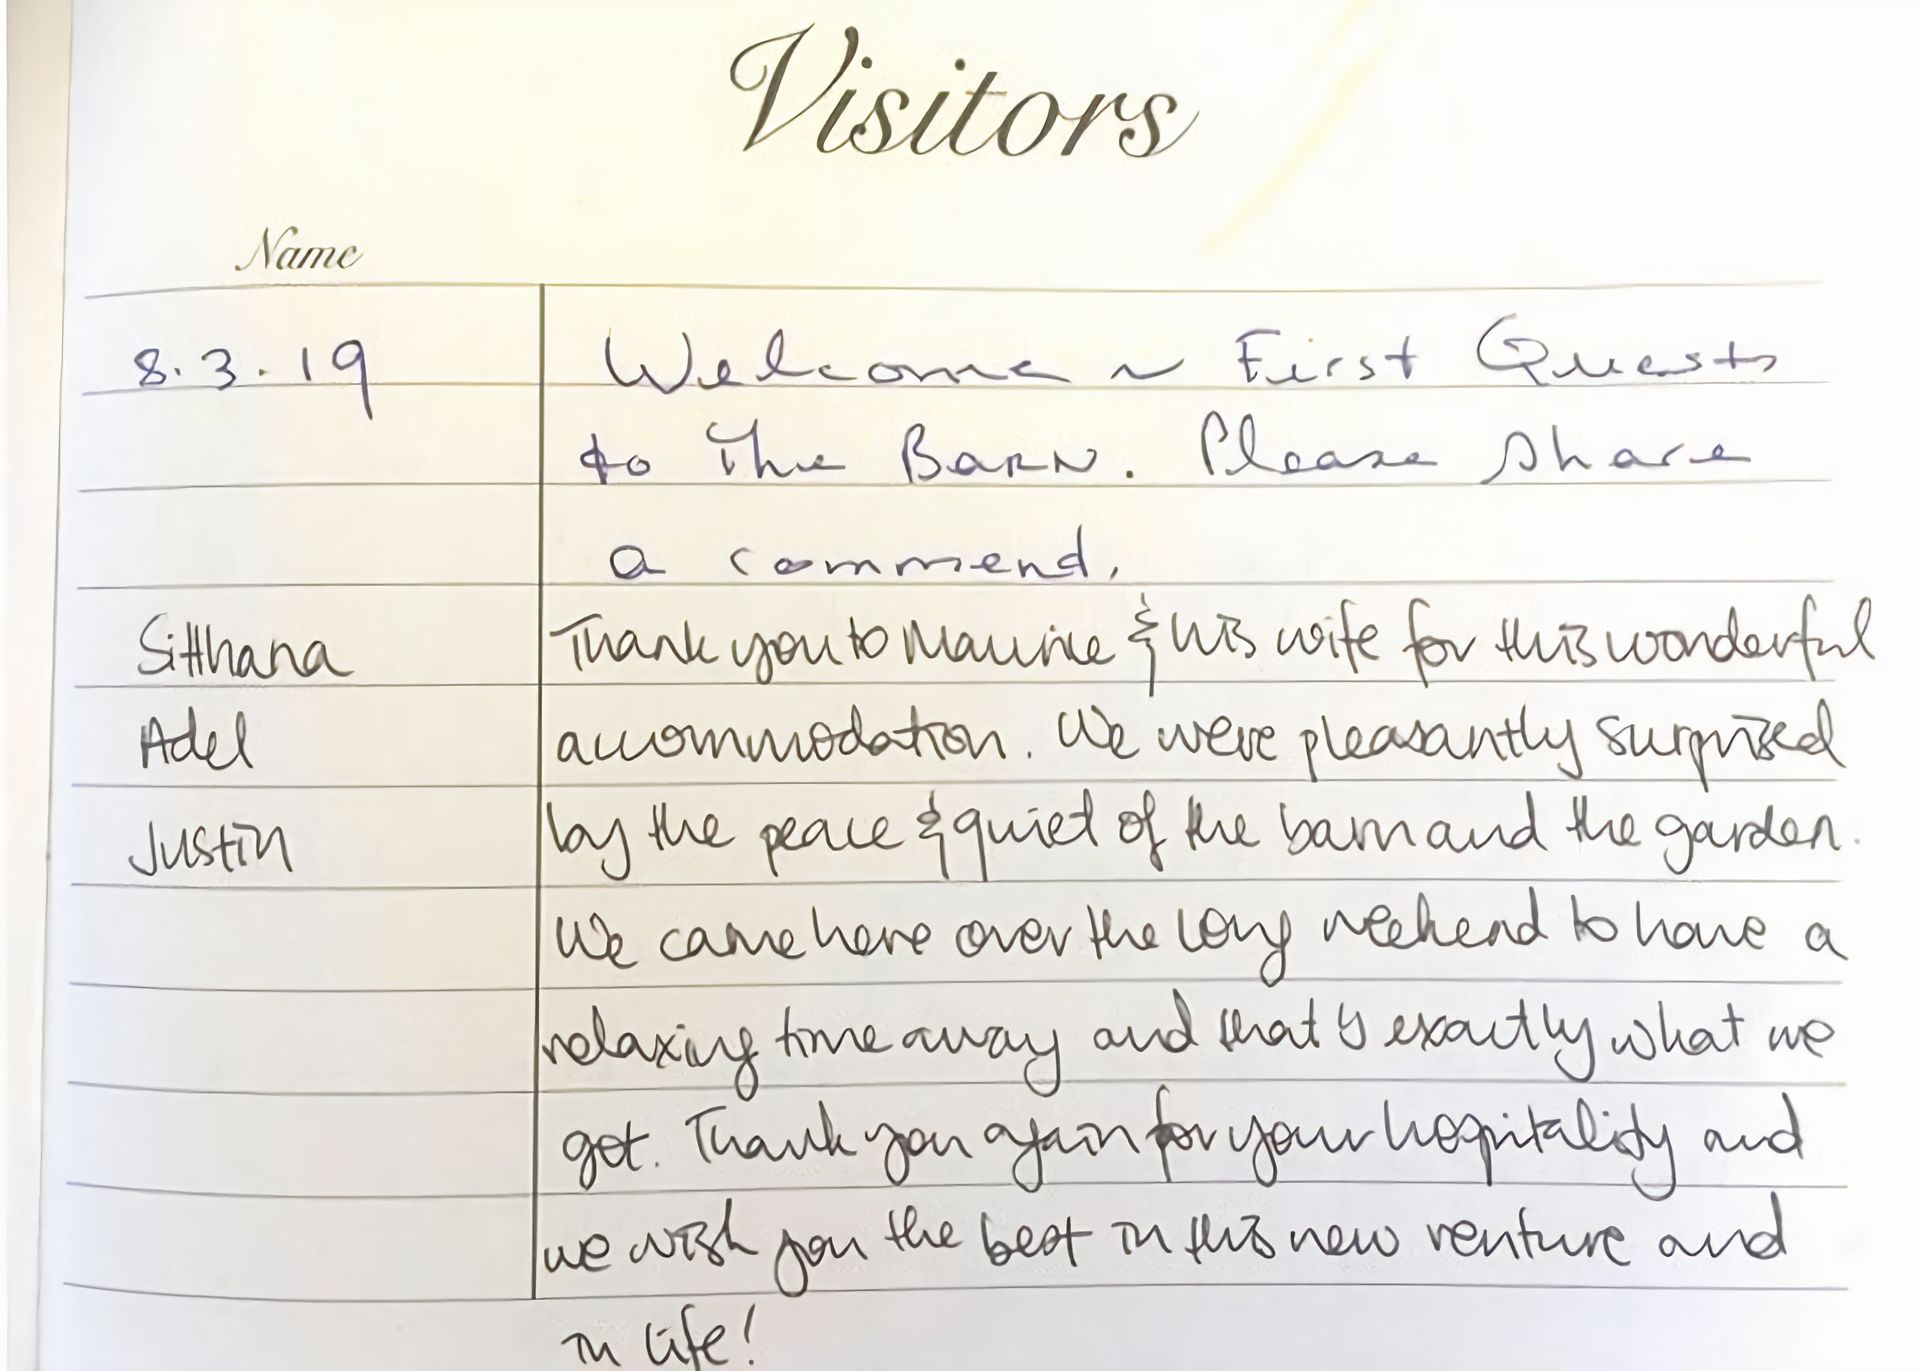 Visitors
Name
8.3.19 Welcome ~ First Guests
to The Barn. Please share
a commend.
Sitthana Thank you to Maurice & his wife for this wonderful
Adel accommodation. We were pleasantly surprised
Justin by the peace & quiet of the barn and the garden.
We came here over the long weekend to have a
relaxing time away and that's exactly what we
got. Thank you again for your hospitality and
we wish you the best in this new venture and
in life!